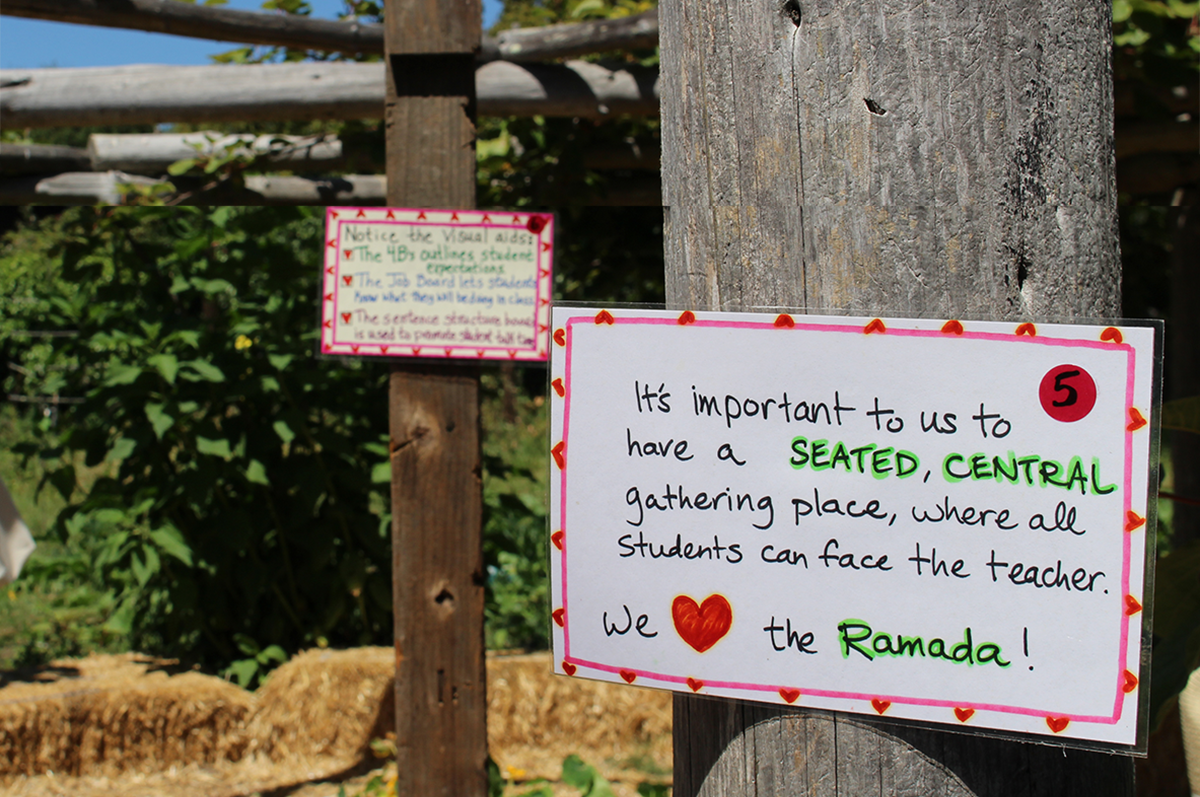 Notice the Visual aids:
The 4Bs outlines student
expectations.
The Job Board lets students
know what they will be doing in class.
The sentence structure board
is used to promote student talk time
5
It's important to us to
have a SEATED, CENTRAL
gathering place, where all
students can face the teacher.
We ❤ the Ramada!